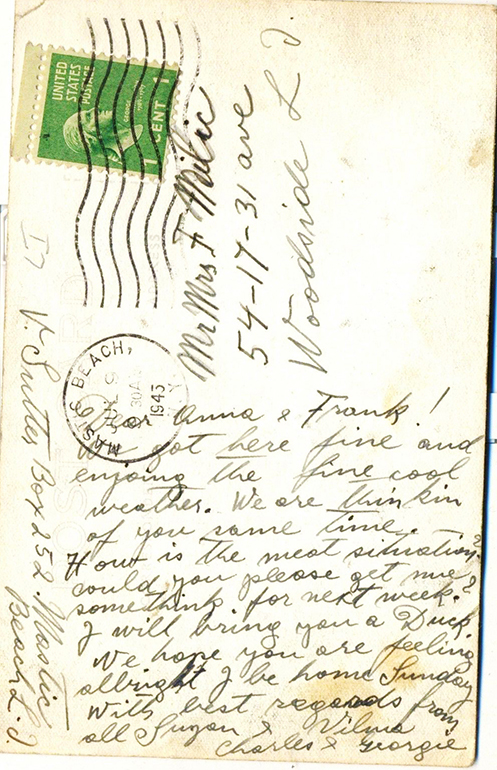 UNITED
STATES
POSTAGE
1 CENT 1
MASTIC BEACH,
9
30 AM
1943
N.Y.
Mr Mrs F Milic
54-17-31 ave
Woodside L I
Dear Anna & Frank!
We got here fine and
enjoing the fine cool
weather. We are thinkin
of you same time.
How is the meat situation?
would you please get me
somethink for next week?
I will bring you a Duck
We hope you are feeling
allbright I be home Sunday
With best regards from
all Suzon & Vilma
Charles & Georgie
V. Smutles Box 252. Mastic
Beach L. I